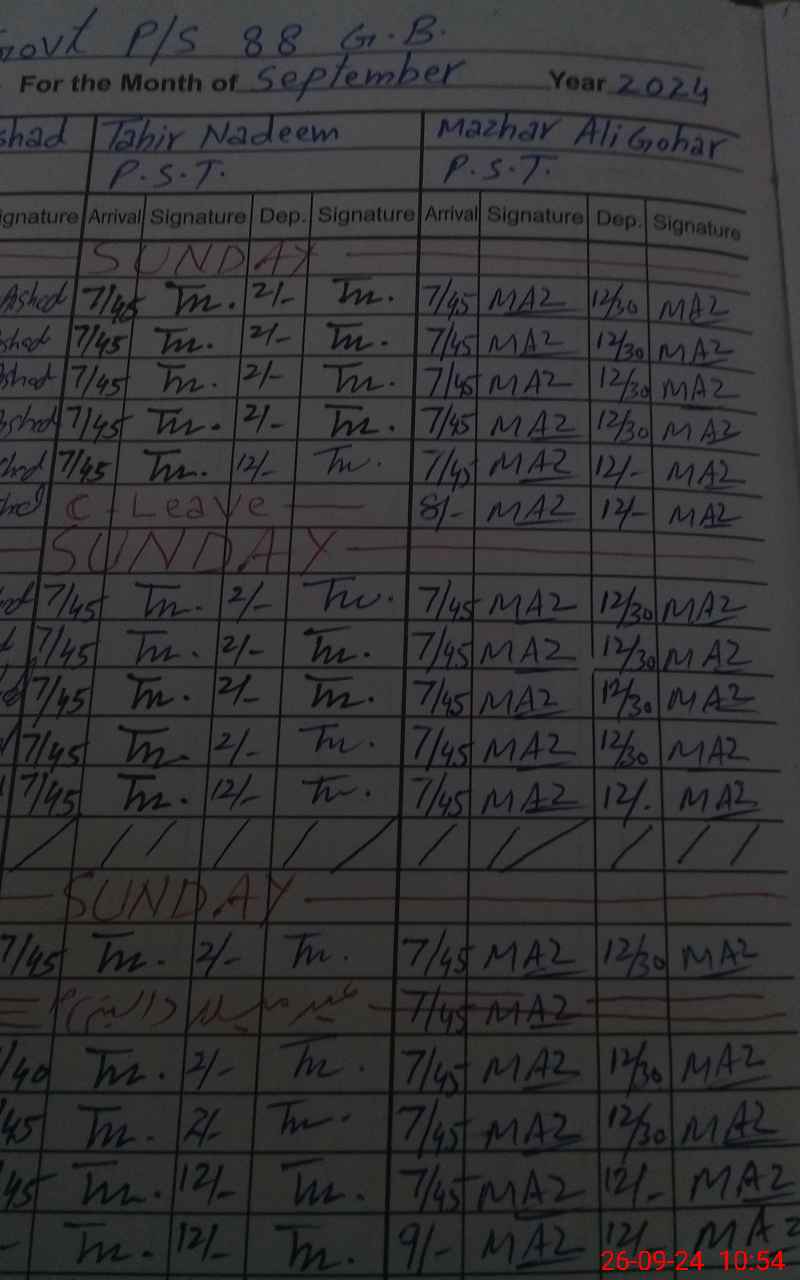 Govt P/S 88 G.B.
For the Month of September Year 2024
shad Tahir Nadeem Mazhar Ali Gohar
P.S.T. P.S.T.
ignature Arrival Signature Dep. Signature Arrival Signature Dep. Signature
SUNDAY
Ashed 7/45 Tn. 2/- Tn. 7/45 MAZ 12/30 MAZ
shed 7/45 Tn. 2/- Tn. 7/45 MAZ 12/30 MAZ
shed 7/45 Tn. 2/- Tn. 7/45 MAZ 12/30 MAZ
shed 7/45 Tn. 2/- Tn. 7/45 MAZ 12/30 MAZ
hed 7/45 Tn. 12/- Tn. 7/45 MAZ 12/- MAZ
hed C - Leave 8/- MAZ 12/- MAZ
SUNDAY
7/45 Tn. 2/- Tn. 7/45 MAZ 12/30 MAZ
7/45 Tn. 2/- Tn. 7/45 MAZ 12/30 MAZ
7/45 Tn. 2/- Tn. 7/45 MAZ 12/30 MAZ
7/45 Tn. 2/- Tn. 7/45 MAZ 12/30 MAZ
7/45 Tn. 12/- Tn. 7/45 MAZ 12/- MAZ
SUNDAY
7/45 Tn. 2/- Tn. 7/45 MAZ 12/30 MAZ
عید میلاد النبیؐ 7/45 MAZ
/40 Tn. 2/- Tn. 7/45 MAZ 12/30 MAZ
45 Tn. 2/- Tn. 7/45 MAZ 12/30 MAZ
45 Tn. 12/- Tn. 7/45 MAZ 12/- MAZ
- Tn. 12/- Tn. 9/- MAZ 12/- MAZ
26-09-24 10:54